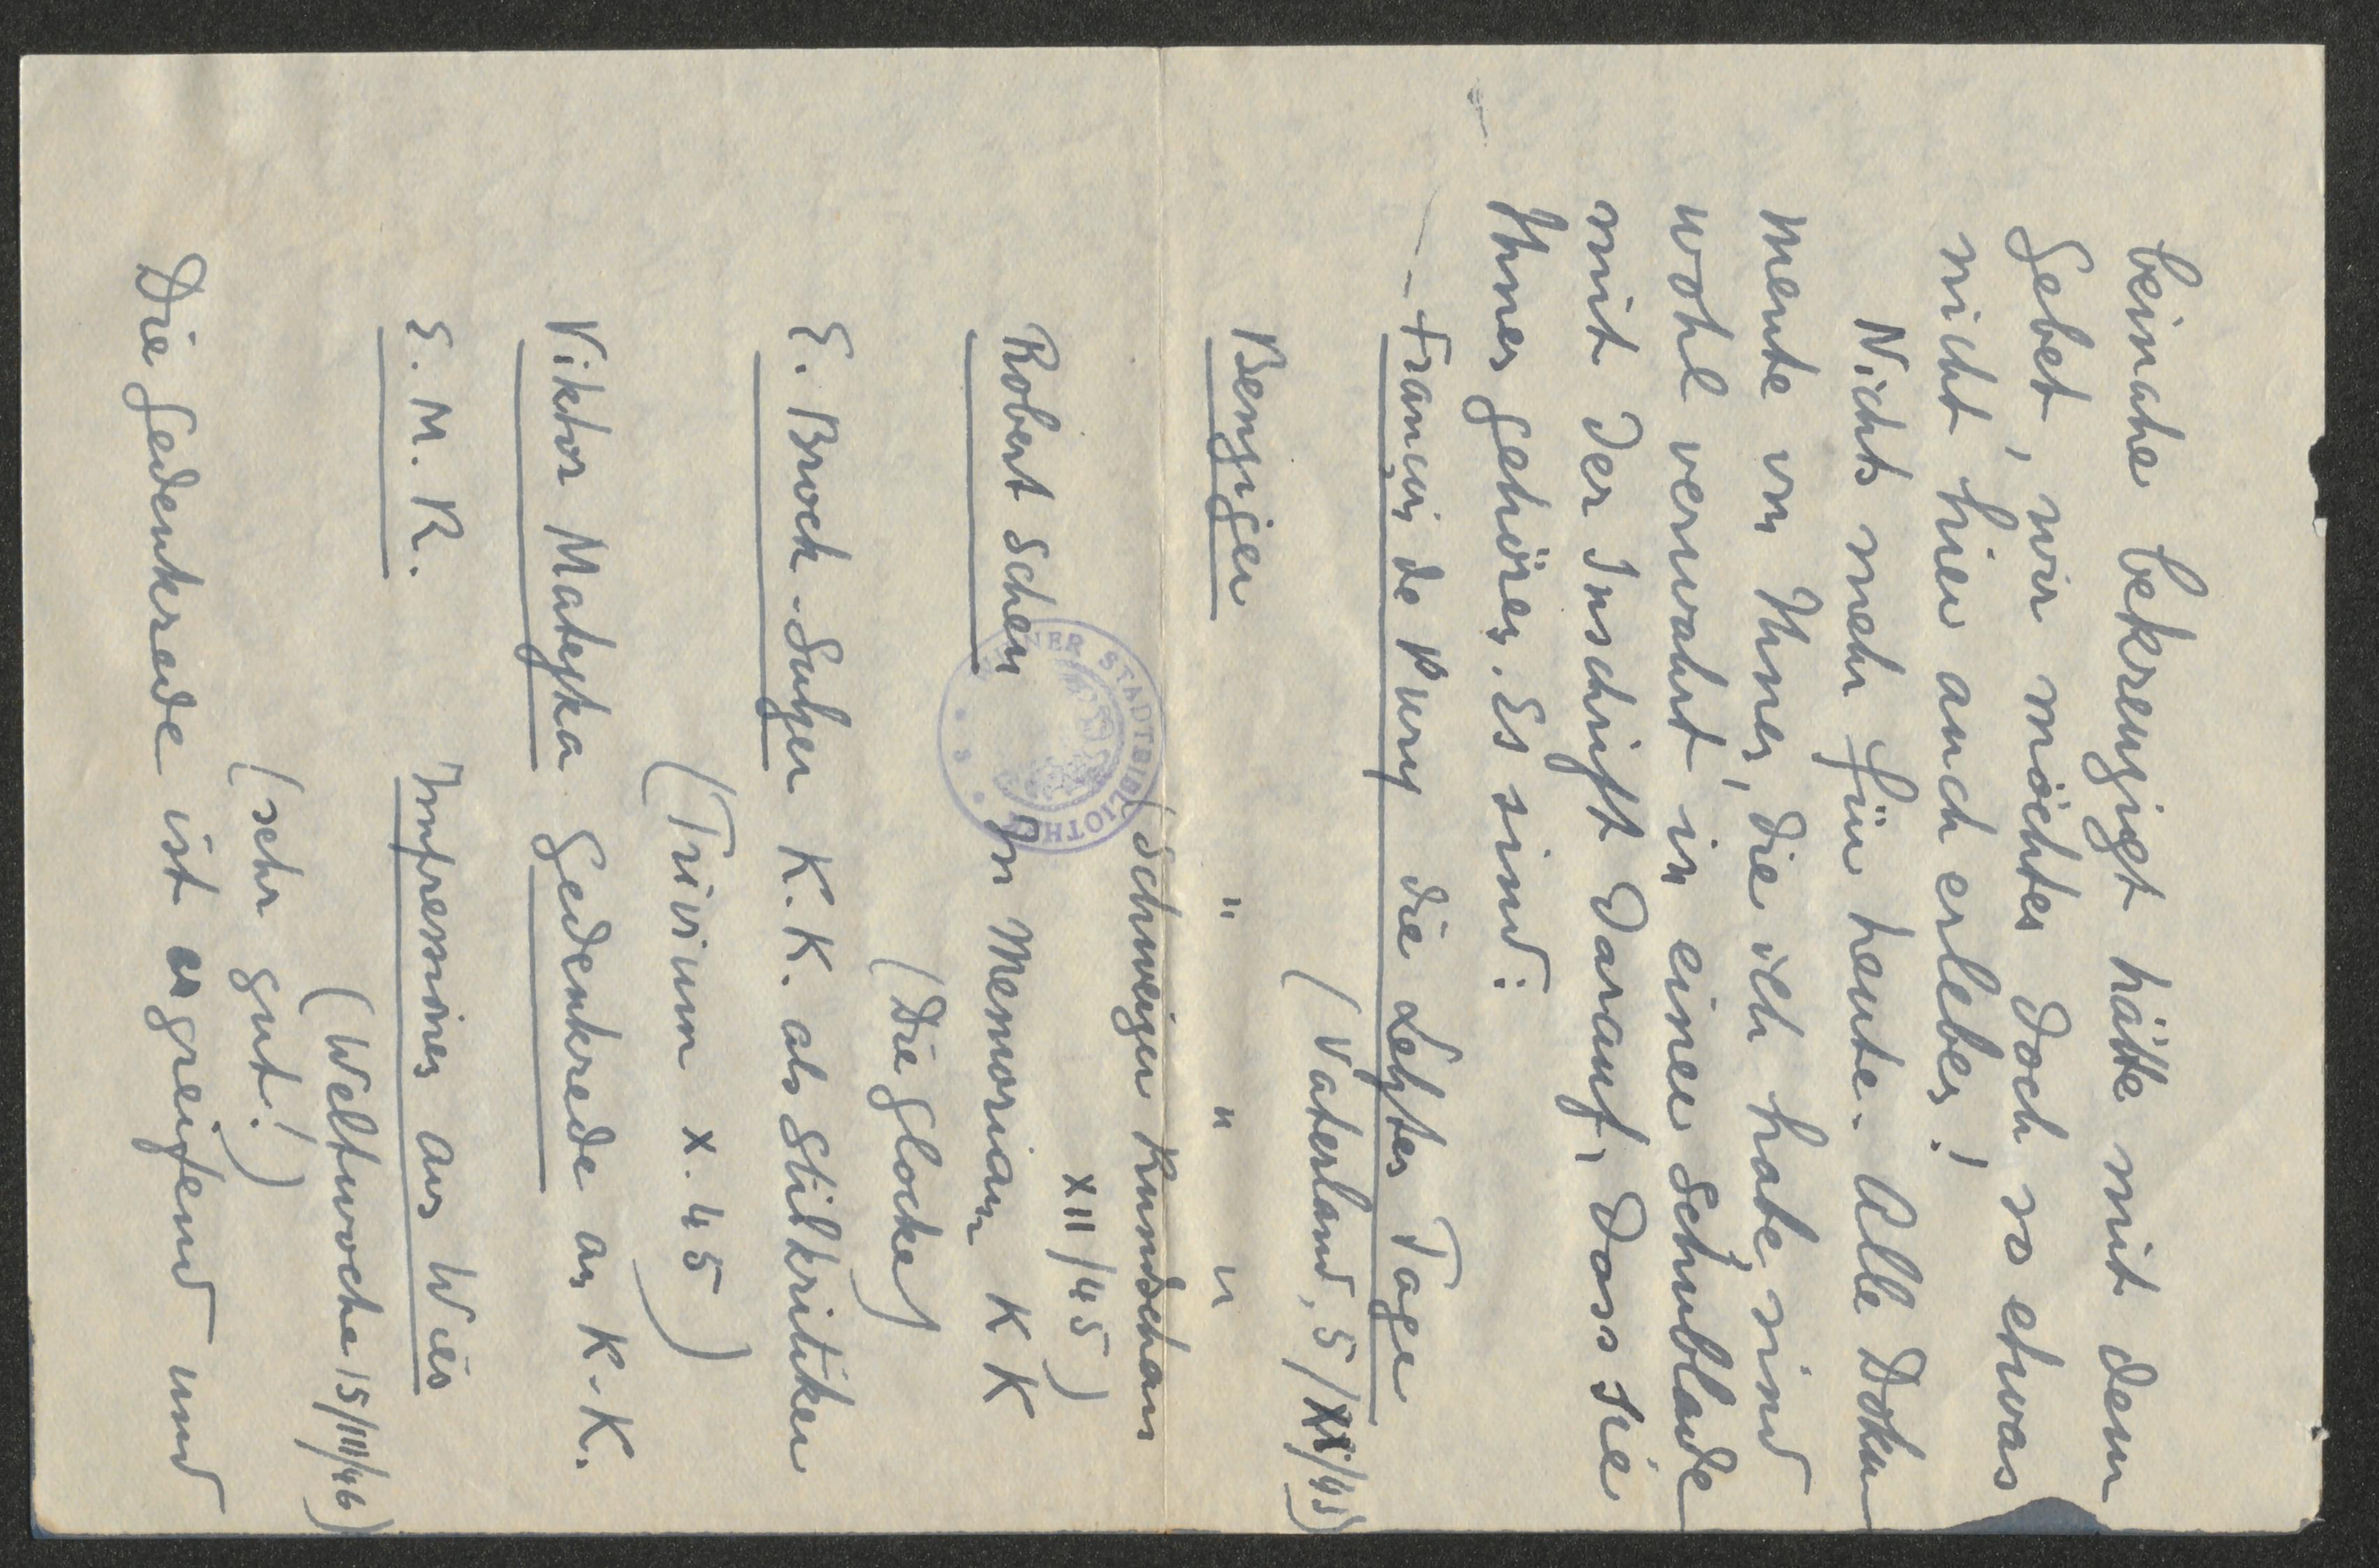 beinahe bekreuzigt hätte mit dem
Gebet, wir möchten doch so etwas
nicht hier auch erleben!
Nichts mehr für heute. Alle Doku-
mente von Ihnen, die ich habe, sind
wohl verwahrt in einer Schublade
mit der Inschrift darauf, dass sie
Ihnen gehören. Es sind:
Francois de Pury die Letzten Tage
(Vaterland, 5/XI/45)
Benziger " " "
(Schweizer Rundschau
XII/45)
Robert Scheu In Memoriam K K
(Die Glocke)
E. Brock-Sulzer K.K. als Stilkritiker
(Trivium X.45)
Viktor Matejka Gedenkrede an K.K.
E.M.R. Impressionen aus Wien
(Weltwoche 15/III/46)
(sehr gut!)
Die Gedenkrede ist ergreifend und
WIENER STADTBIBLIOTHEK